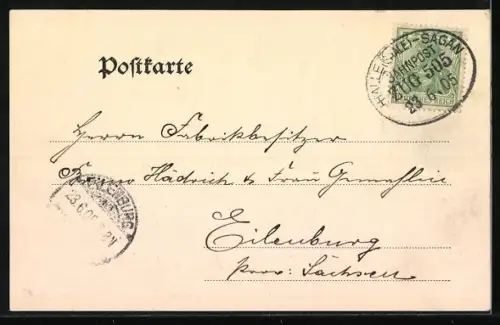 Postkarte
HALLE (SAALE)-SAGAN
BAHNPOST
ZUG 505
23 6 05
Herrn Fabrikbesitzer
Bruno Hädrich & Frau Gemahlin
Eilenburg
Prov: Sachsen
EILENBURG
23.6.05